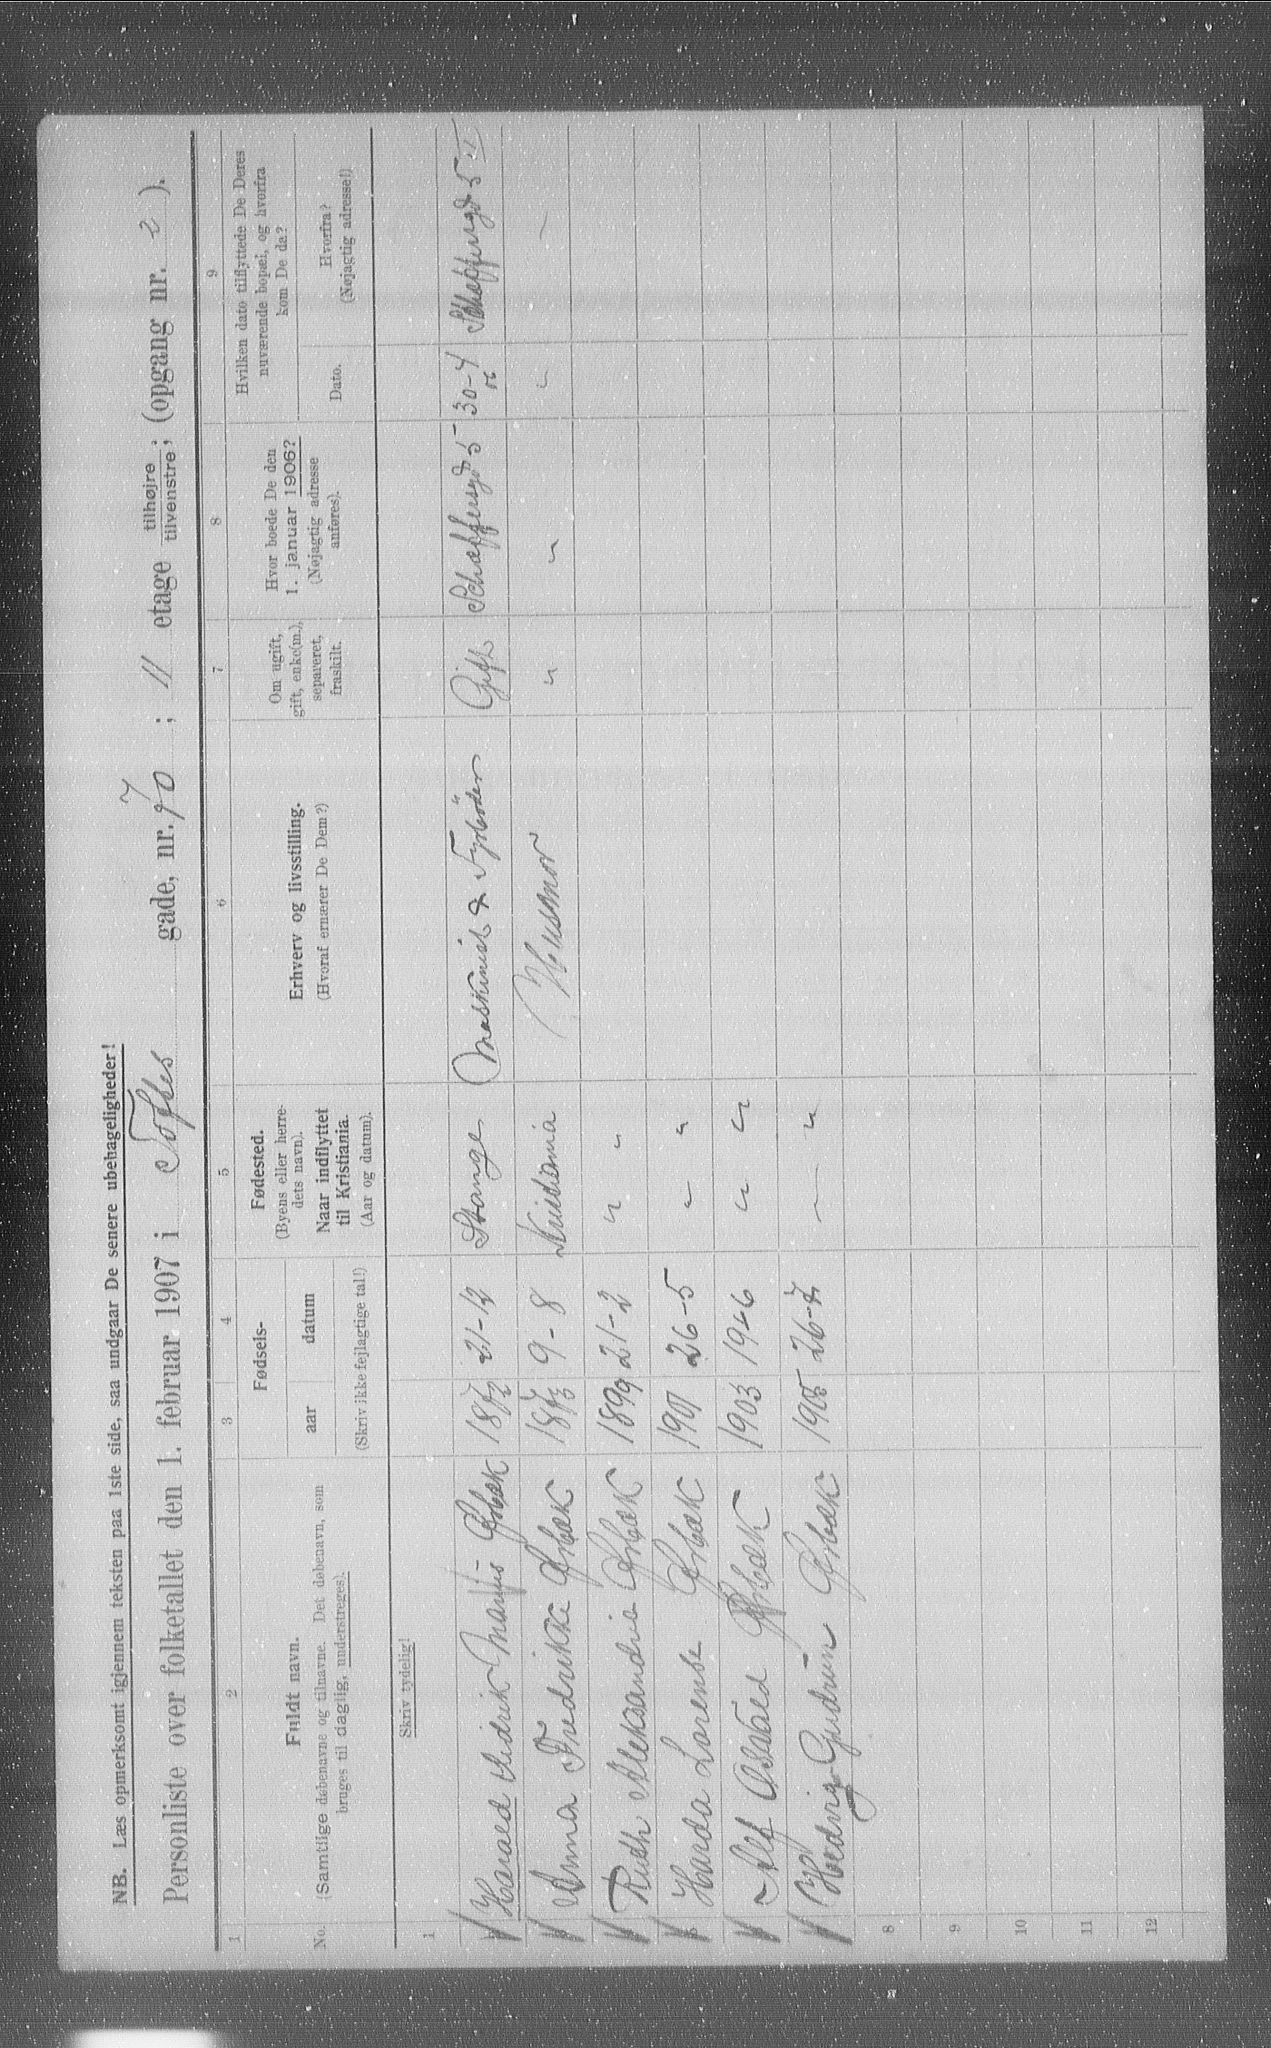 NB. Læs opmerksomt igjennem teksten paa 1ste side, saa undgaar De senere ubehageligheder!
Personliste over folketallet den 1. februar 1907 i Toftes gade, nr. 70 ; 11 etage tilhøjre, tilvenstre; (opgang nr. 2 ).
1 2 3 4 5 6 7 8 9
No.
Fuldt navn.
(Samtlige døbenavne og tilnavne. Det døbenavn, som
bruges til daglig, understreges).
Fødsels-
aar datum
(Skriv ikke fejlagtige tal!)
Fødested.
(Byens eller herre-
dets navn).
Naar indflyttet
til Kristiania.
(Aar og datum).
Erhverv og livsstilling.
(Hvoraf ernærer De Dem?)
Om ugift,
gift, enke(m.),
separeret,
fraskilt.
Hvor boede De den
1. januar 1906?
(Nøjagtig adresse
anføres).
Hvilken dato tilflyttede De Deres
nuværende bopæl, og hvorfra
kom De da?
Dato.
Hvorfra?
(Nøjagtig adresse!)
Skriv tydelig!
1
Harald Midrik Ørbæk 1872 21-12 Stange Maskinist & Fyrbøder Gift Schæffersgd 5 30-4 06 Schæffersgd 5 II
Anna Fredrikke Ørbæk 1873 9-8 Kristiania Husmor " " " "
Ruth Aleksandria Ørbæk 1899 21-2 " "
Harda Lorense Ørbæk 1901 26-5 " "
Alf Osvald Ørbæk 1903 19-6 " "
Hedvig Gudrun Ørbæk 1905 26-7 " "
8
9
10
11
12